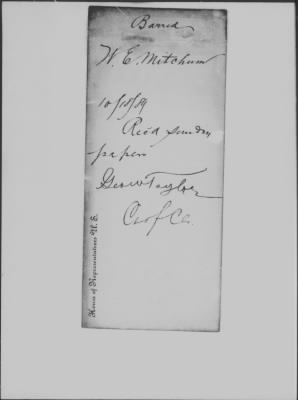 Barred
W. E. Mitchum
10/18/89
Rec'd sundry
papers
Geo W Taylor
C of Co.
House of Representatives U. S.